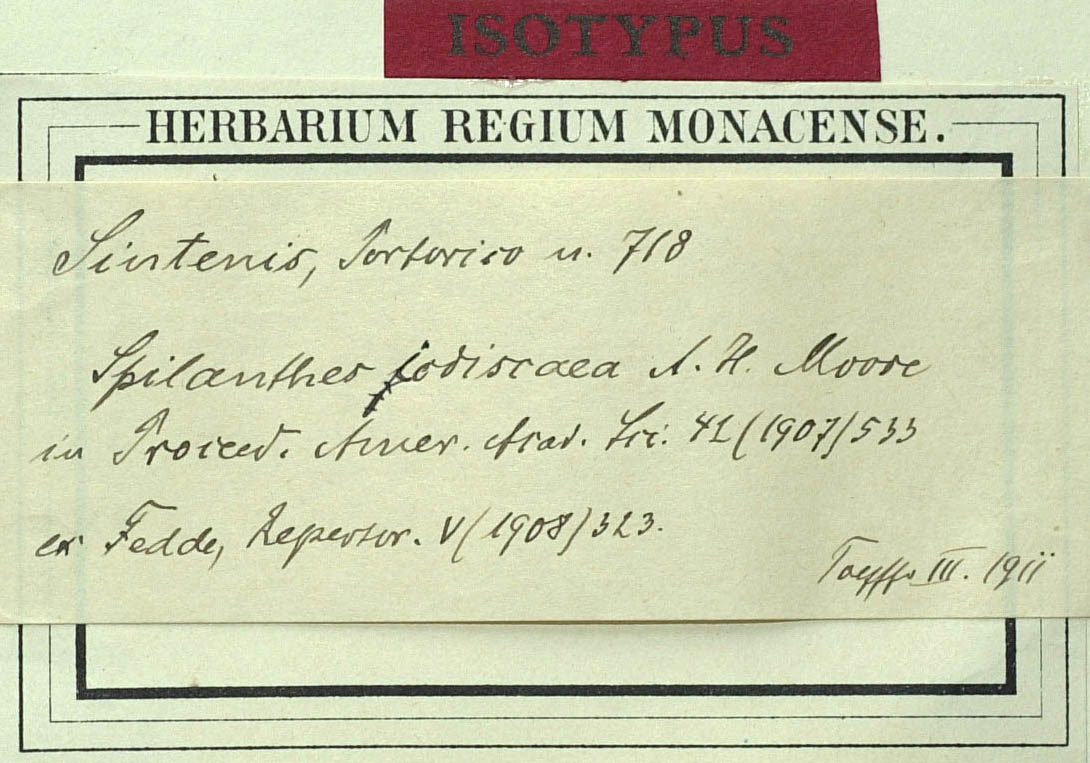 ISOTYPUS
HERBARIUM REGIUM MONACENSE.
Sintenis, Portorico n. 718
Spilanthes iodiscaea A. H. Moore
in Proceed. Amer. Acad. Sci. 42 (1907) 533
ex Fedde, Repertor. V (1908) 323.
III. 1911